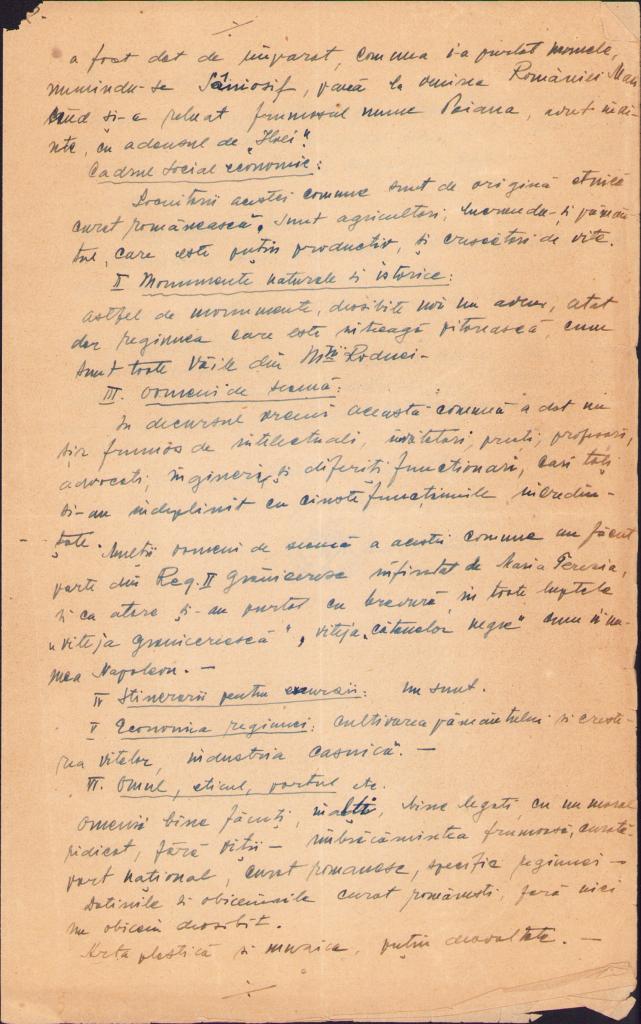 ./.
a fost dat de împărat, comuna i-a purtat numele,
numindu-se Sâniosif, până la venirea României Mari
când și-a reluat frumosul nume Poiana, avut
cu adausul de „Ilvei".
Cadrul social economic:
Locuitorii acestei comune sunt de origină etnică
curat românească. Sunt agricultori, lucrându-și pămân-
tul, care este puțin productiv, și crescători de vite.
II Monumente naturale și istorice:
Astfel de monumente, deosibite noi nu avem, atât
doar regiunea care este întreagă pitorească, cum
sunt toate Văile din Mții Rodnei.-
III. Oameni de seamă:
In decursul vremii această comună a dat un
șir frumos de intelectuali, învățători, preoți, profesori,
advocați, ingineri și diferiți funcționari, cari toți
și-au îndeplinit cu cinste funcțiunile, incredin-
țate.
Mulți oameni de seamă a acestei comune au făcut
parte din Reg. II Grăniceresc înființat de Maria Terezia,
și ca atare și-au purtat cu bravură, în toate luptele
„vitejia grănicerească", vitejia „cătanelor negre" cum îi nu-
mea Napoleon. -
IV Itinerarii pentru excursii: nu sunt.
V Economia regiunei: cultivarea pământului și crește-
rea vitelor, industria casnică. -
VI. Omul, eticul, portul etc.
Oameni bine făcuți, înalți, bine legați, cu un moral
ridicat, fără vitii - îmbrăcămintea frumoasă, curată
port național, curat românesc, specific regiunei -
Datinile și obiceiurile curat românești, fără nici
un obiceiu deosibit.
Arta plastică și muzica, puțin desvoltate. -
./.